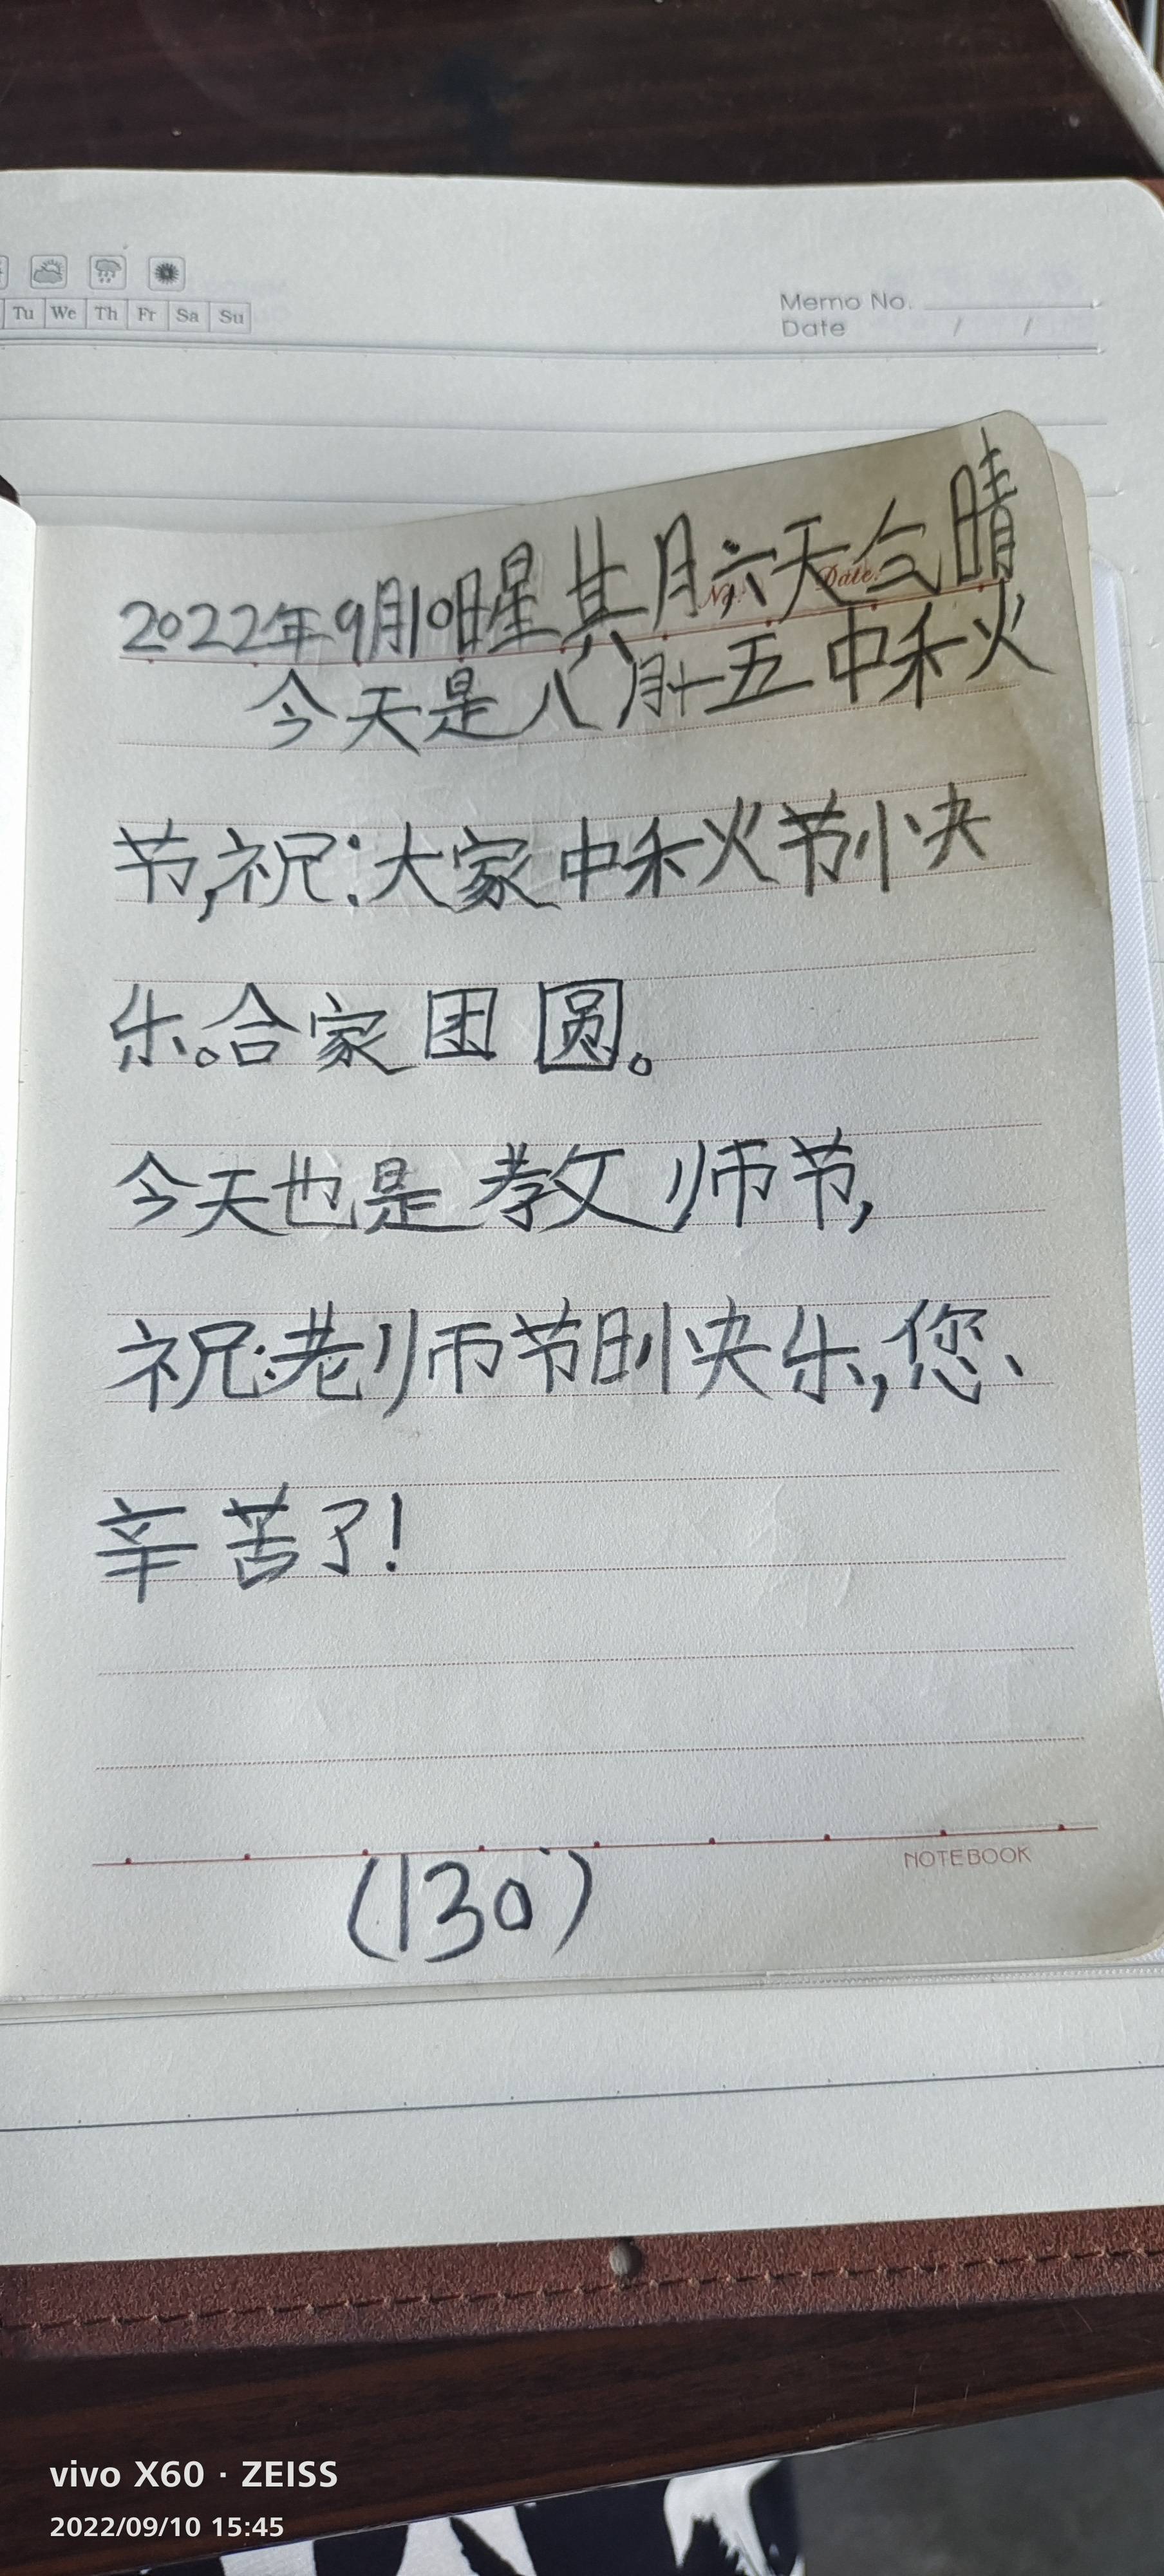 Tu We Th Fr Sa Su
Memo No.
Date / /
No. Date.
2022年9月10日星期六天气晴
今天是八月十五中秋
节,祝:大家中秋节快
乐。合家团圆。
今天也是教师节,
祝:老师节日快乐,您、
辛苦了!
NOTEBOOK
(130)
vivo X60 · ZEISS
2022/09/10 15:45